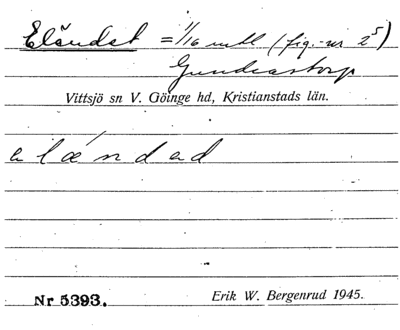 Eländet = 1/16 mtl (fig. nr 2⁵)
Gundrastorp
Vittsjö sn V. Göinge hd, Kristianstads län.
elǽndad
Nr 5393. Erik W. Bergenrud 1945.